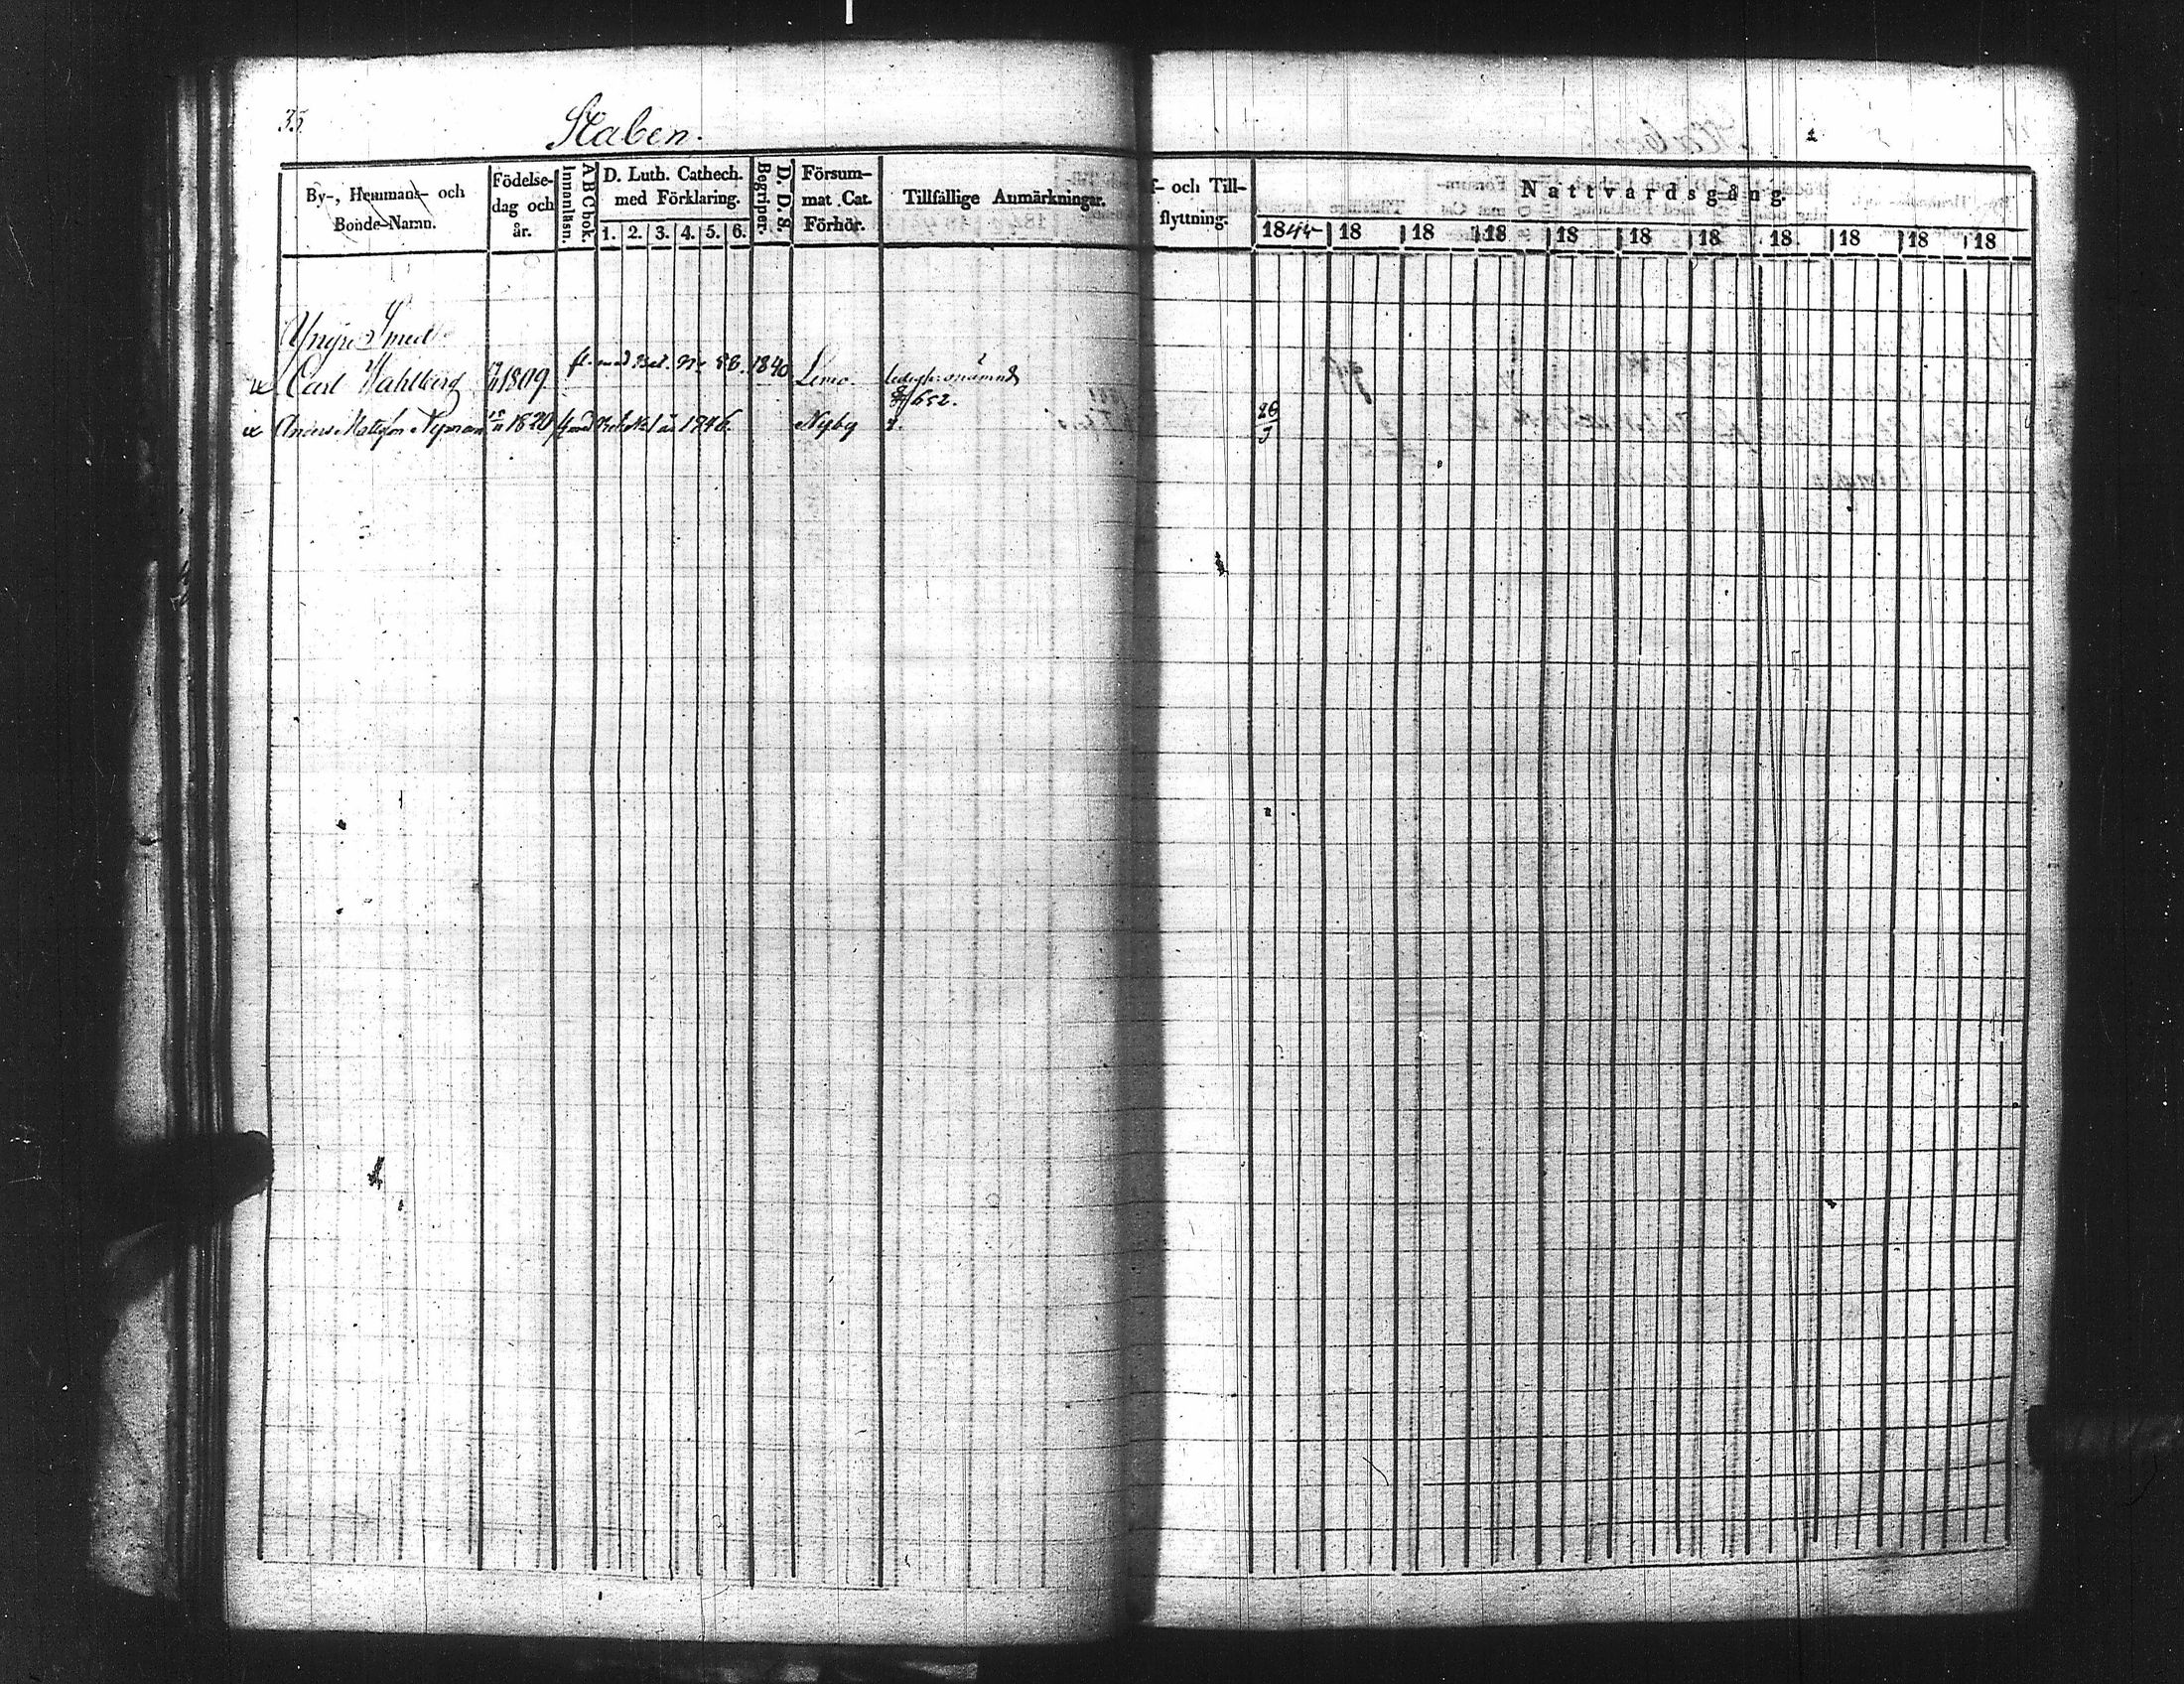 35
Staben.
By-, Hemmans- och
Bonde-Namn.
Födelse-
dag och
år.
Innanläsn.
A B C bok.
D. Luth. Cathech.
med Förklaring.
1. 2. 3. 4. 5. 6.
Begriper.
D. D. S.
Försum-
mat Cat.
Förhör.
Tillfällige Anmärkningar.
f- och Till-
flyttning.
Nattvardsgång.
1844 18 18 18 18 18 18 18 18 18 18
Yngre Smed
Carl Wahlberg 1809 fl. med Bet. Nr 1840 Lemo
652.
Anders Mattsson Nyman 1820 fl med Bet. 1846. Nyby
26